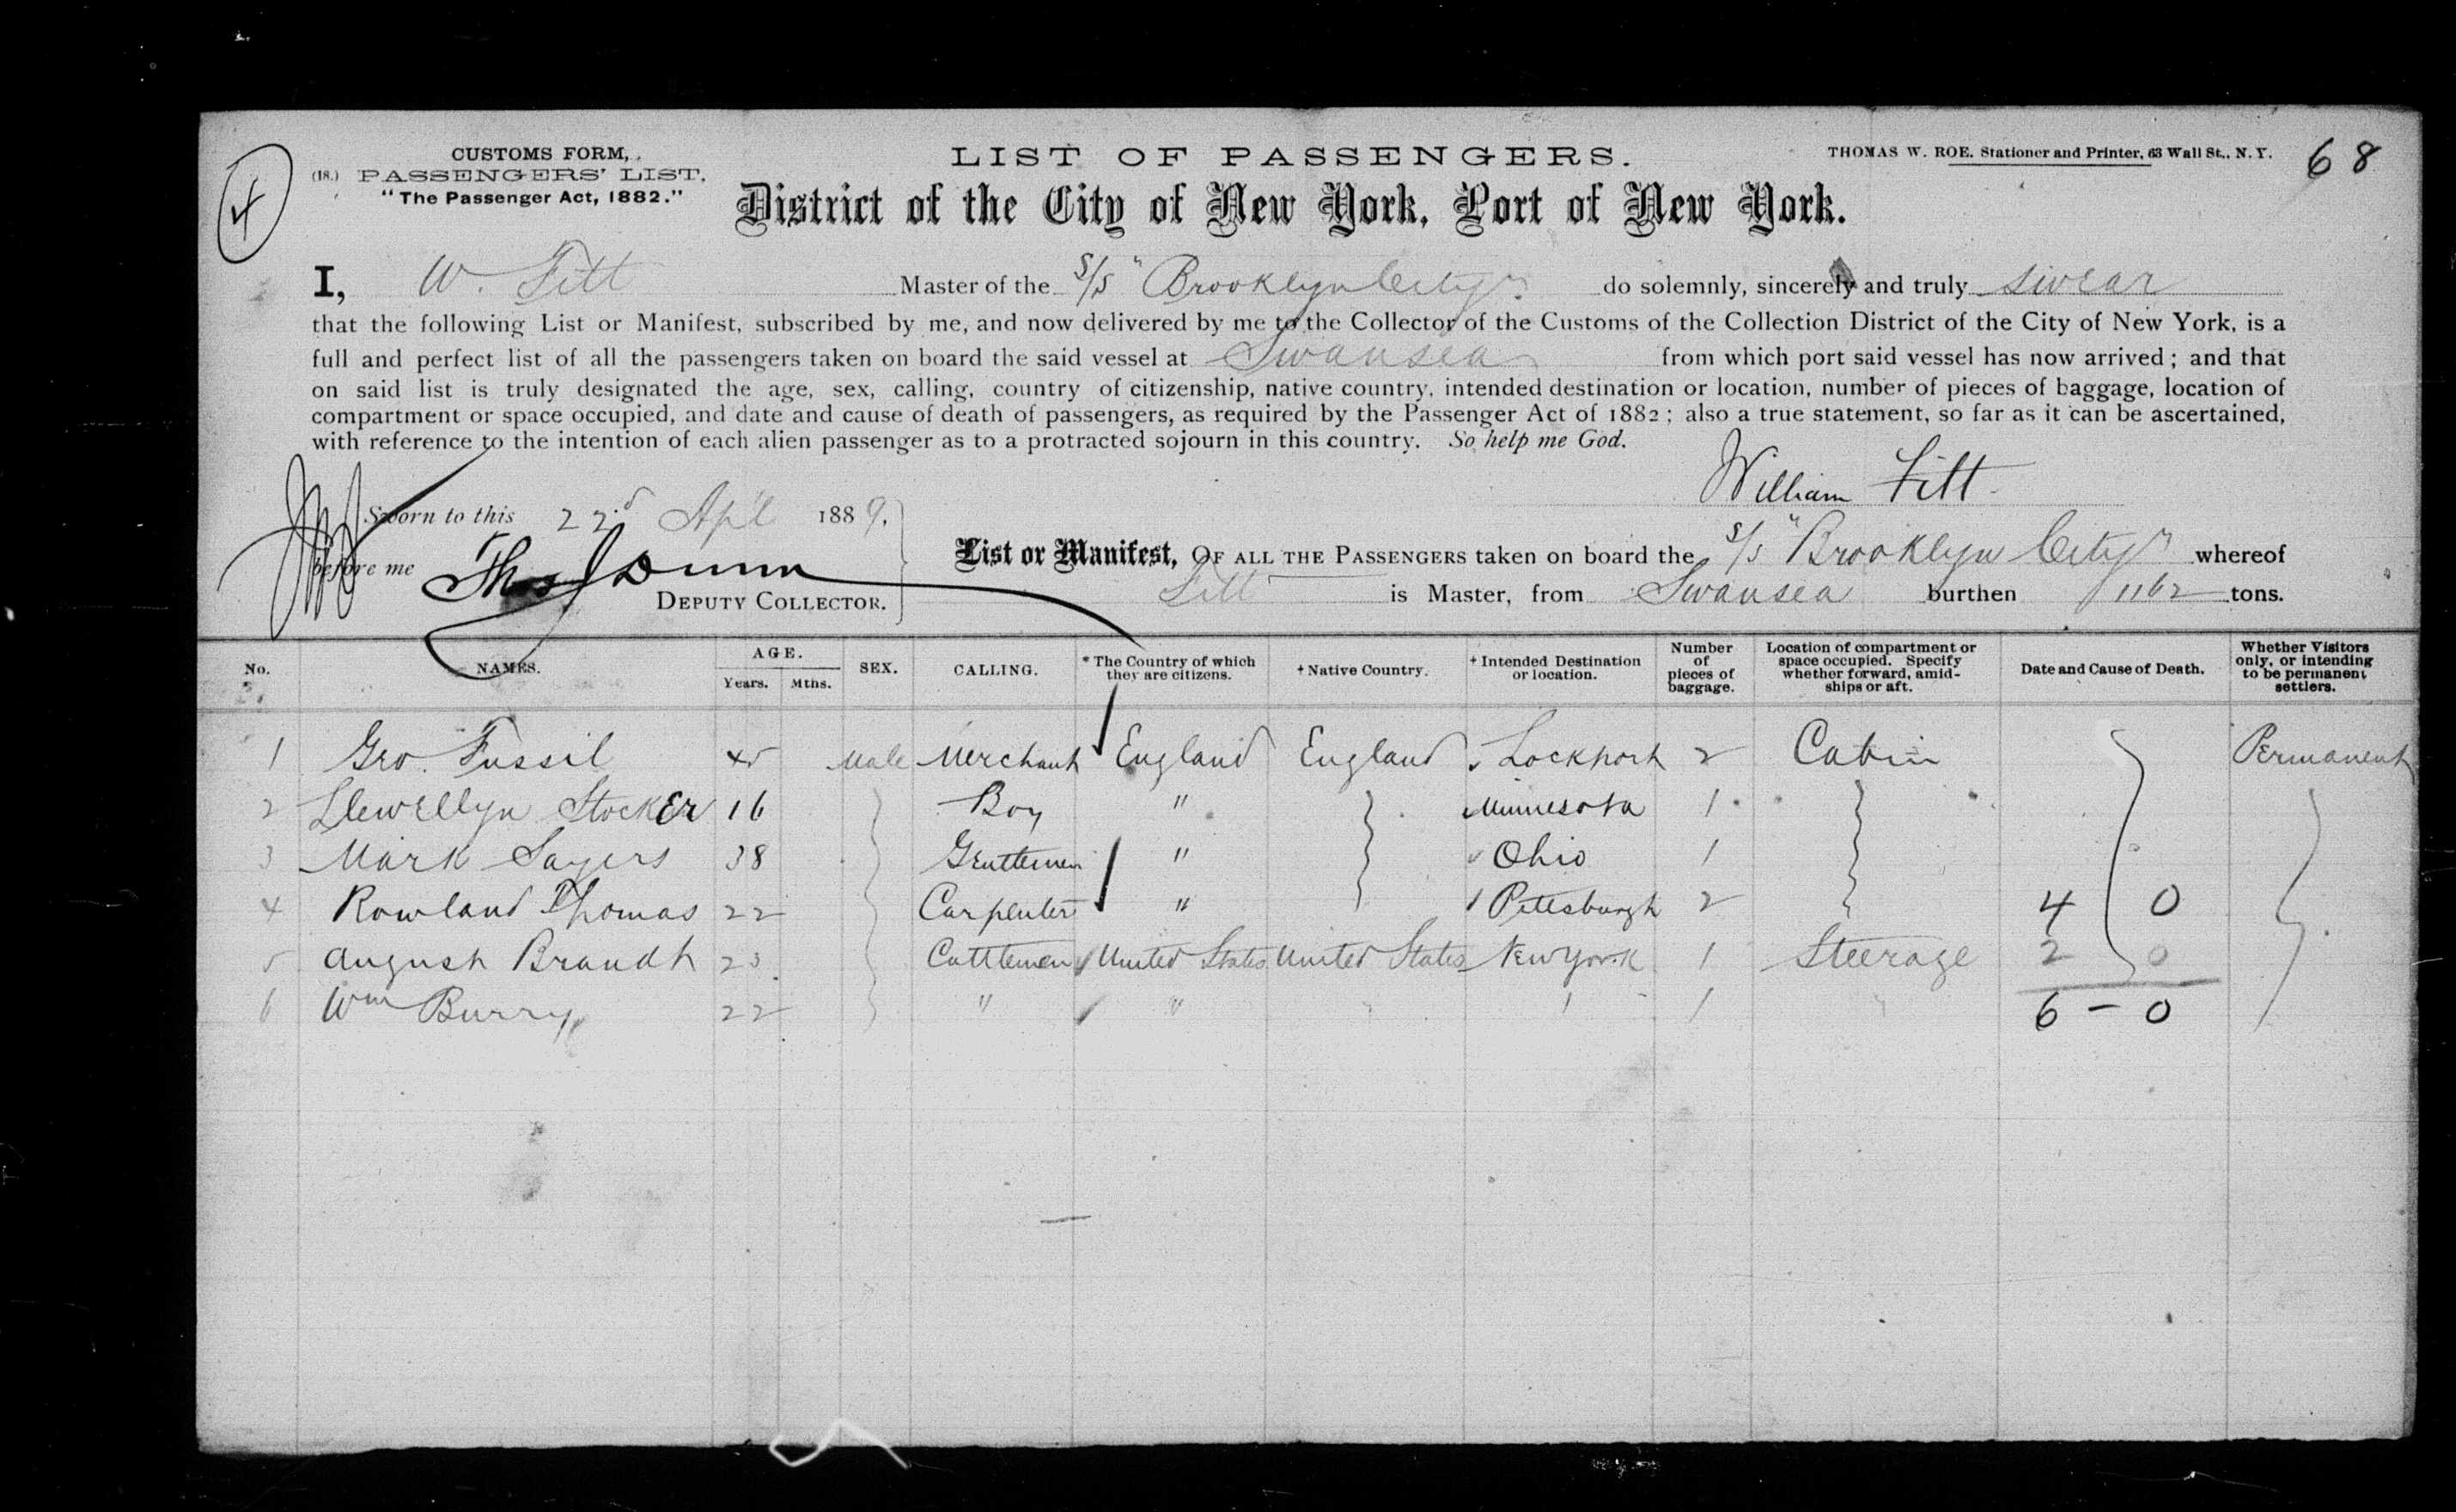 CUSTOMS FORM,
(18.) PASSENGERS' LIST.
"The Passenger Act, 1882."
LIST OF PASSENGERS.
THOMAS W. ROE. Stationer and Printer, 63 Wall St., N. Y.
68
4
District of the City of New York, Port of New York.
I, W. Fitt Master of the S/S "Brooklyn City" do solemnly, sincerely and truly swear
that the following List or Manifest, subscribed by me, and now delivered by me to the Collector of the Customs of the Collection District of the City of New York, is a
full and perfect list of all the passengers taken on board the said vessel at Swansea from which port said vessel has now arrived; and that
on said list is truly designated the age, sex, calling, country of citizenship, native country, intended destination or location, number of pieces of baggage, location of
compartment or space occupied, and date and cause of death of passengers, as required by the Passenger Act of 1882; also a true statement, so far as it can be ascertained,
with reference to the intention of each alien passenger as to a protracted sojourn in this country. So help me God.
William Fitt
Sworn to this 22d Apl 1889.
before me Thos J Dunn
DEPUTY COLLECTOR.
List or Manifest, OF ALL THE PASSENGERS taken on board the S/S "Brooklyn City" whereof
Fitt is Master, from Swansea burthen 1162 tons.
No. NAMES. AGE. Years. Mths. SEX. CALLING. * The Country of which they are citizens. + Native Country. + Intended Destination or location. Number of pieces of baggage. Location of compartment or space occupied. Specify whether forward, amidships or aft. Date and Cause of Death. Whether Visitors only, or intending to be permanent settlers.
1 Geo. Fussil 45 Male Merchant England England Lockport 2 Cabin Permanent
2 Llewellyn Stocker 16 Boy " Minnesota 1
3 Mark Sayers 38 Gentlemen " Ohio 1
4 Rowland Thomas 22 Carpenter " Pittsburgh 2 4 0
5 August Brandt 23 Cattlemen United States United States New York 1 Steerage 2 0
6 Wm Burry 22 " " " " 1 " 6 - 0